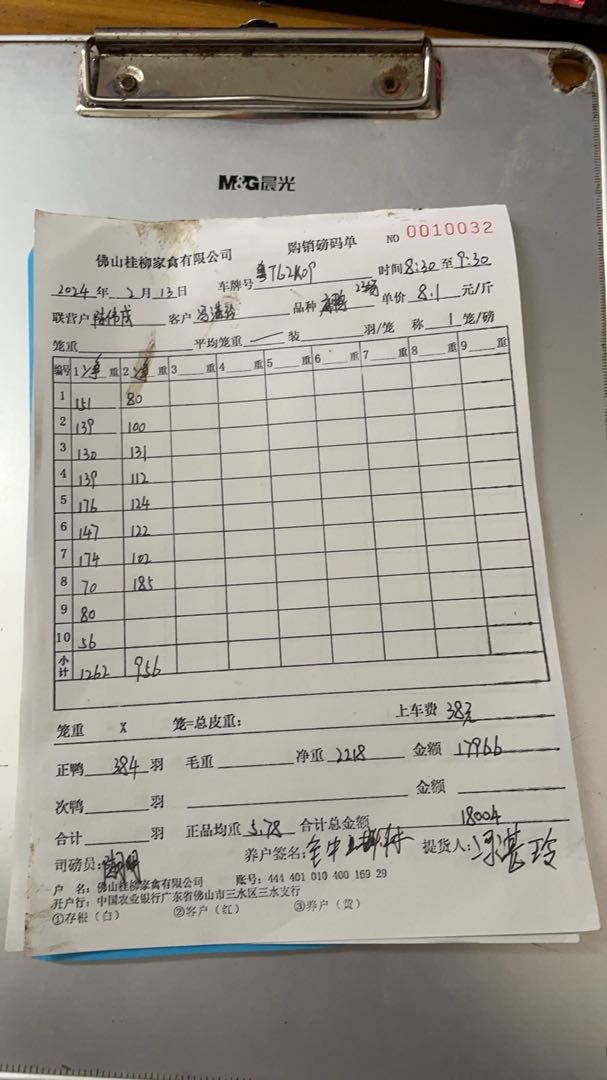 M&G晨光
佛山桂柳家禽有限公司 购销磅码单 NO 0010032
2024 年 2 月 13 日 车牌号 粤T62K09 时间 8:30 至 9:30
联营户 陈伟成 客户 品种 单价 8.1 元/斤
笼重 平均笼重 装 羽/笼 称 1 笼/磅
编号 1 净 重 2 净 重 3 重 4 重 5 重 6 重 7 重 8 重 9 重
1 151 80
2 139 100
3 130 131
4 139 112
5 176 124
6 147 122
7 174 102
8 70 185
9 80
10 56
小计 1262 956
笼重 X 笼=总皮重: 上车费 38元
正鸭 384 羽 毛重 净重 2218 金额 17966
次鸭 羽 金额
合计 羽 正品均重 5.78 合计总金额 18004
司磅员: 养户签名: 提货人:
户 名: 佛山桂柳家禽有限公司 账号: 444 401 010 400 169 29
开户行: 中国农业银行广东省佛山市三水区三水支行
①存根（白） ②客户（红） ③养户（黄）